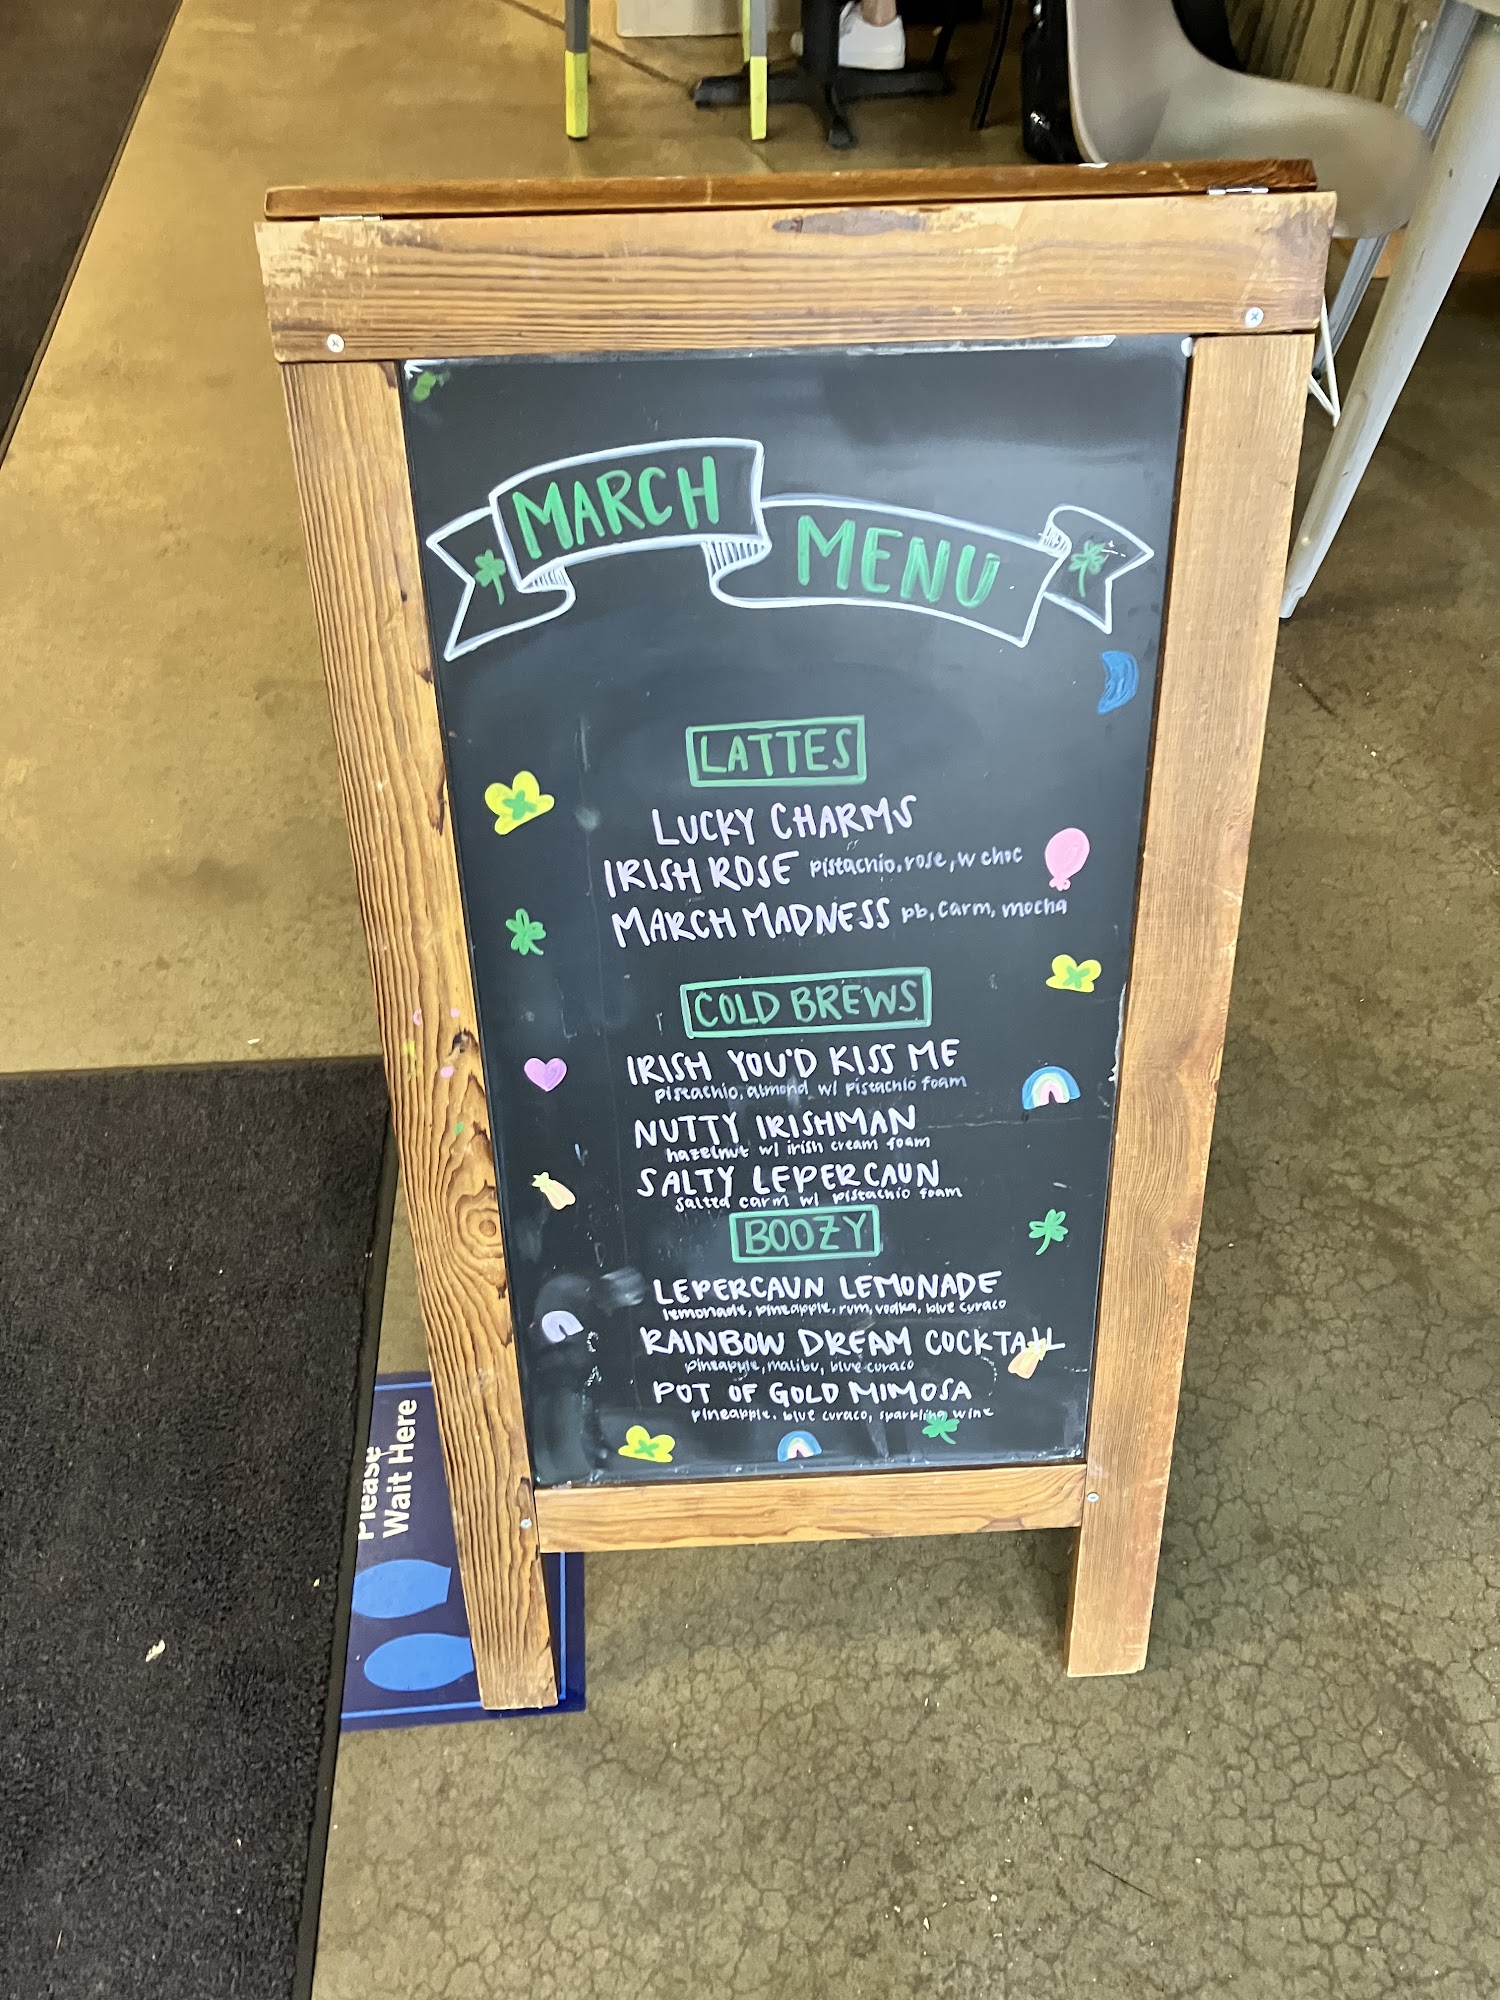 MARCH MENU
LATTES
LUCKY CHARMS
IRISH ROSE pistachio, rose, w choc
MARCH MADNESS pb, carm, mocha
COLD BREWS
IRISH YOU'D KISS ME
pistachio, almond w/ pistachio foam
NUTTY IRISHMAN
hazelnut w/ irish cream foam
SALTY LEPERCAUN
salted carm w/ pistachio foam
BOOZY
LEPERCAUN LEMONADE
lemonade, pineapple, rum, vodka, blue curaco
RAINBOW DREAM COCKTAIL
pineapple, malibu, blue curaco
POT OF GOLD MIMOSA
pineapple, blue curaco, sparkling wine
Please
Wait Here